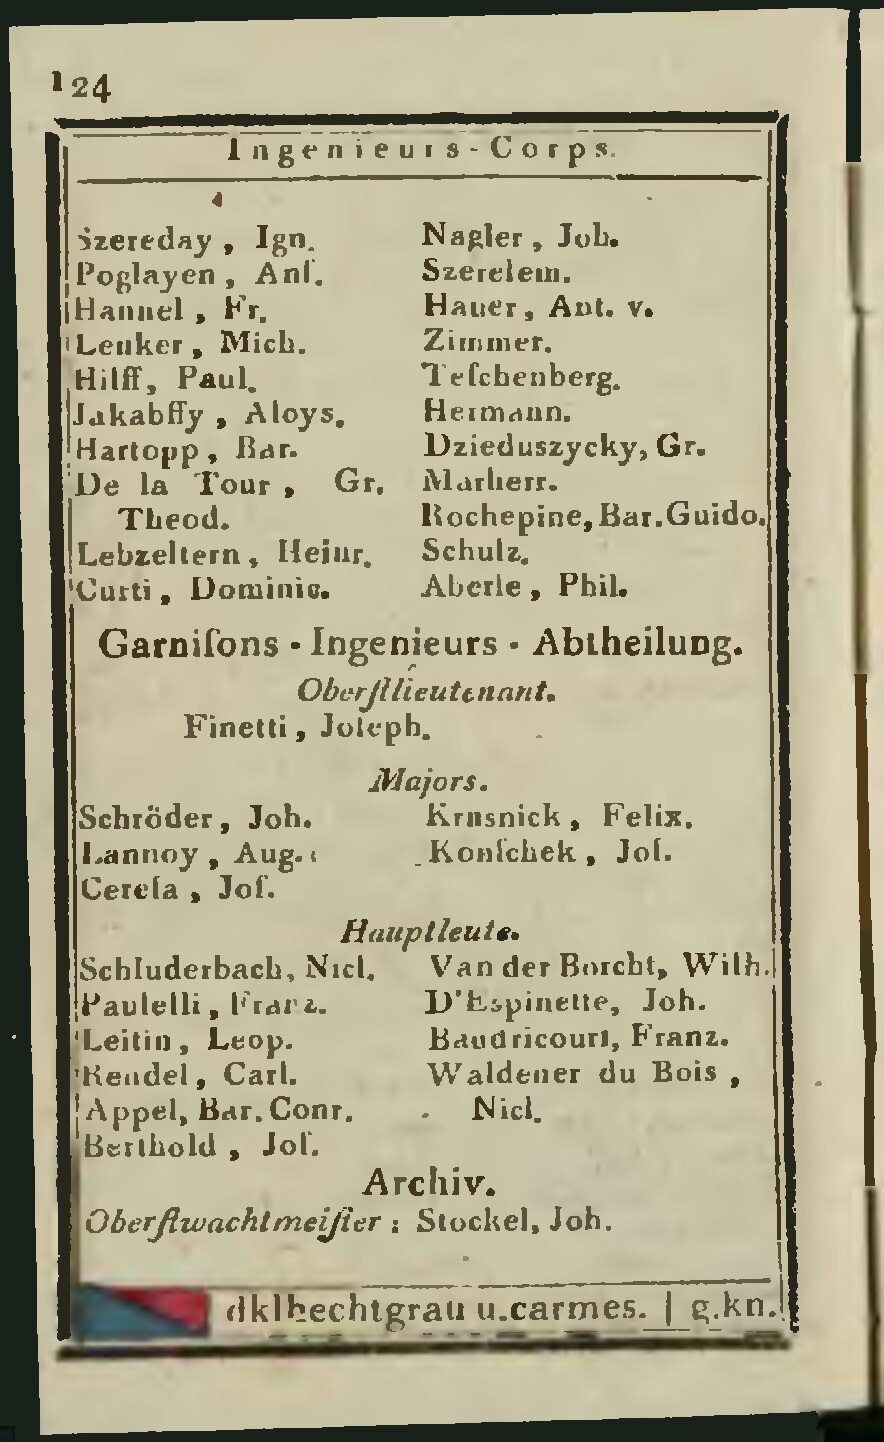 124
Ingenieurs-Corps.
Szereday, Ign.
Poglayen, Anſ.
Hannel, Fr.
Lenker, Mich.
Hilff, Paul.
Jakabffy, Aloys.
Hartopp, Bar.
De la Tour, Gr.
Theod.
Lebzeltern, Heinr.
Curti, Dominic.
Nagler, Joh.
Szerelem.
Hauer, Ant. v.
Zimmer.
Teſchenberg.
Hermann.
Dzieduszycky, Gr.
Marherr.
Rochepine, Bar. Guido.
Schulz.
Aberle, Phil.
Garniſons - Ingenieurs - Abtheilung.
Oberſtlieutenant.
Finetti, Joſeph.
Majors.
Schröder, Joh.
Lannoy, Aug.
Cereſa, Joſ.
Krnsnick, Felix.
Konſchek, Joſ.
Hauptleute.
Schluderbach, Nicl.
Paulelli, Franz.
Leitin, Leop.
Rendel, Carl.
Appel, Bar. Conr.
Berthold, Joſ.
Van der Borcht, Wilh.
D'Espinette, Joh.
Baudricourt, Franz.
Waldener du Bois,
Nicl.
Archiv.
Oberſtwachtmeiſter: Stockel, Joh.
dklhechtgrau u. carmes. | g. kn.